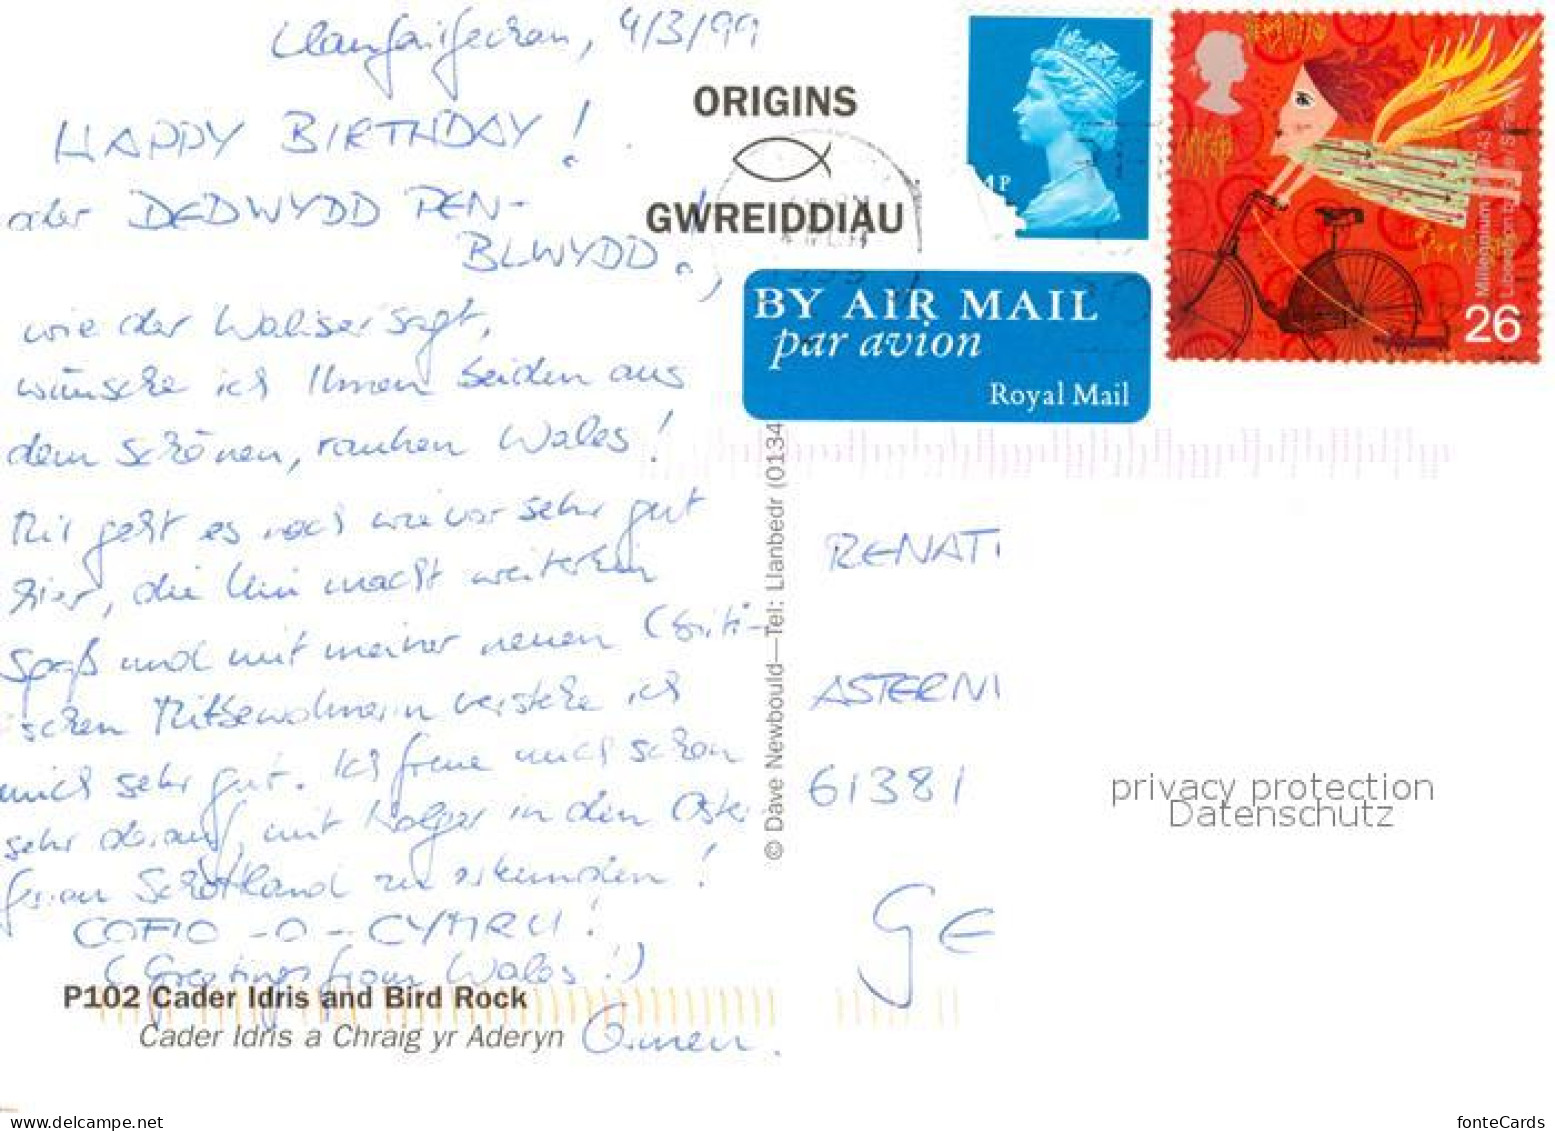 Llanfairfechan, 4/3/99
HAPPY BIRTHDAY!
oder DEDWYDD PEN-
BLWYDD!,
wie der Waliser sagt,
wünsche ich Ihnen beiden aus
dem schönen, rauhen Wales!
Mir geht es nach wie vor sehr gut
hier, die Uni macht weiterhin
Spaß und mit meiner neuen (briti-
schen Mitbewohnerin verstehe ich
mich sehr gut. Ich freue mich schon
sehr darauf, mit Holger in den Oster
ferien Schottland zu erkunden!
COFIO-O-CYMRU!
(Greetings from Wales!)
P102 Cader Idris and Bird Rock
Cader Idris a Chraig yr Aderyn
ORIGINS
GWREIDDIAU
4P
26
BY AIR MAIL
par avion
Royal Mail
© Dave Newbould—Tel: Llanbedr (0134
RENAT
ASTERN
61381
GE
privacy protection
Datenschutz
www.delcampe.net
fonteCards